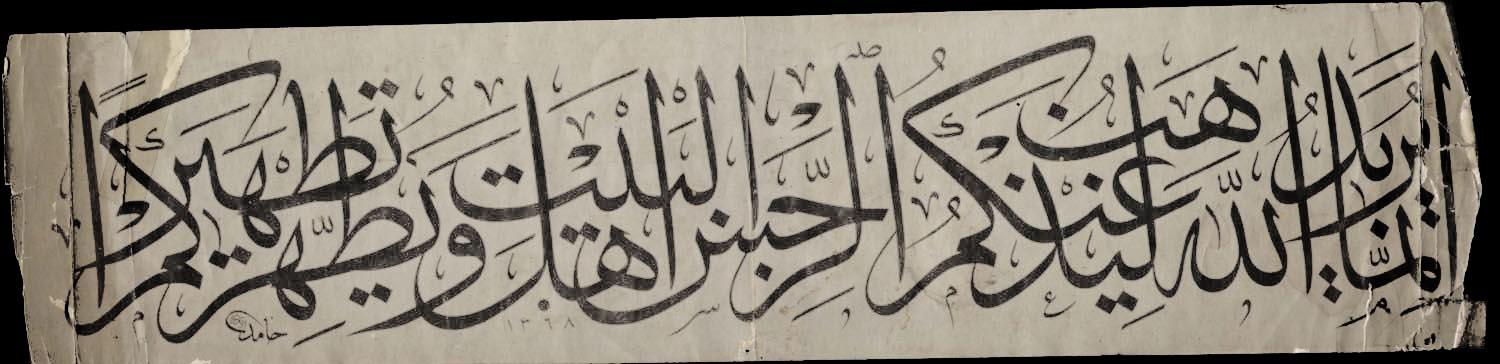 إنما يريد الله ليذهب عنكم الرجس أهل البيت ويطهركم تطهيرا
حامد
١٣٦٨